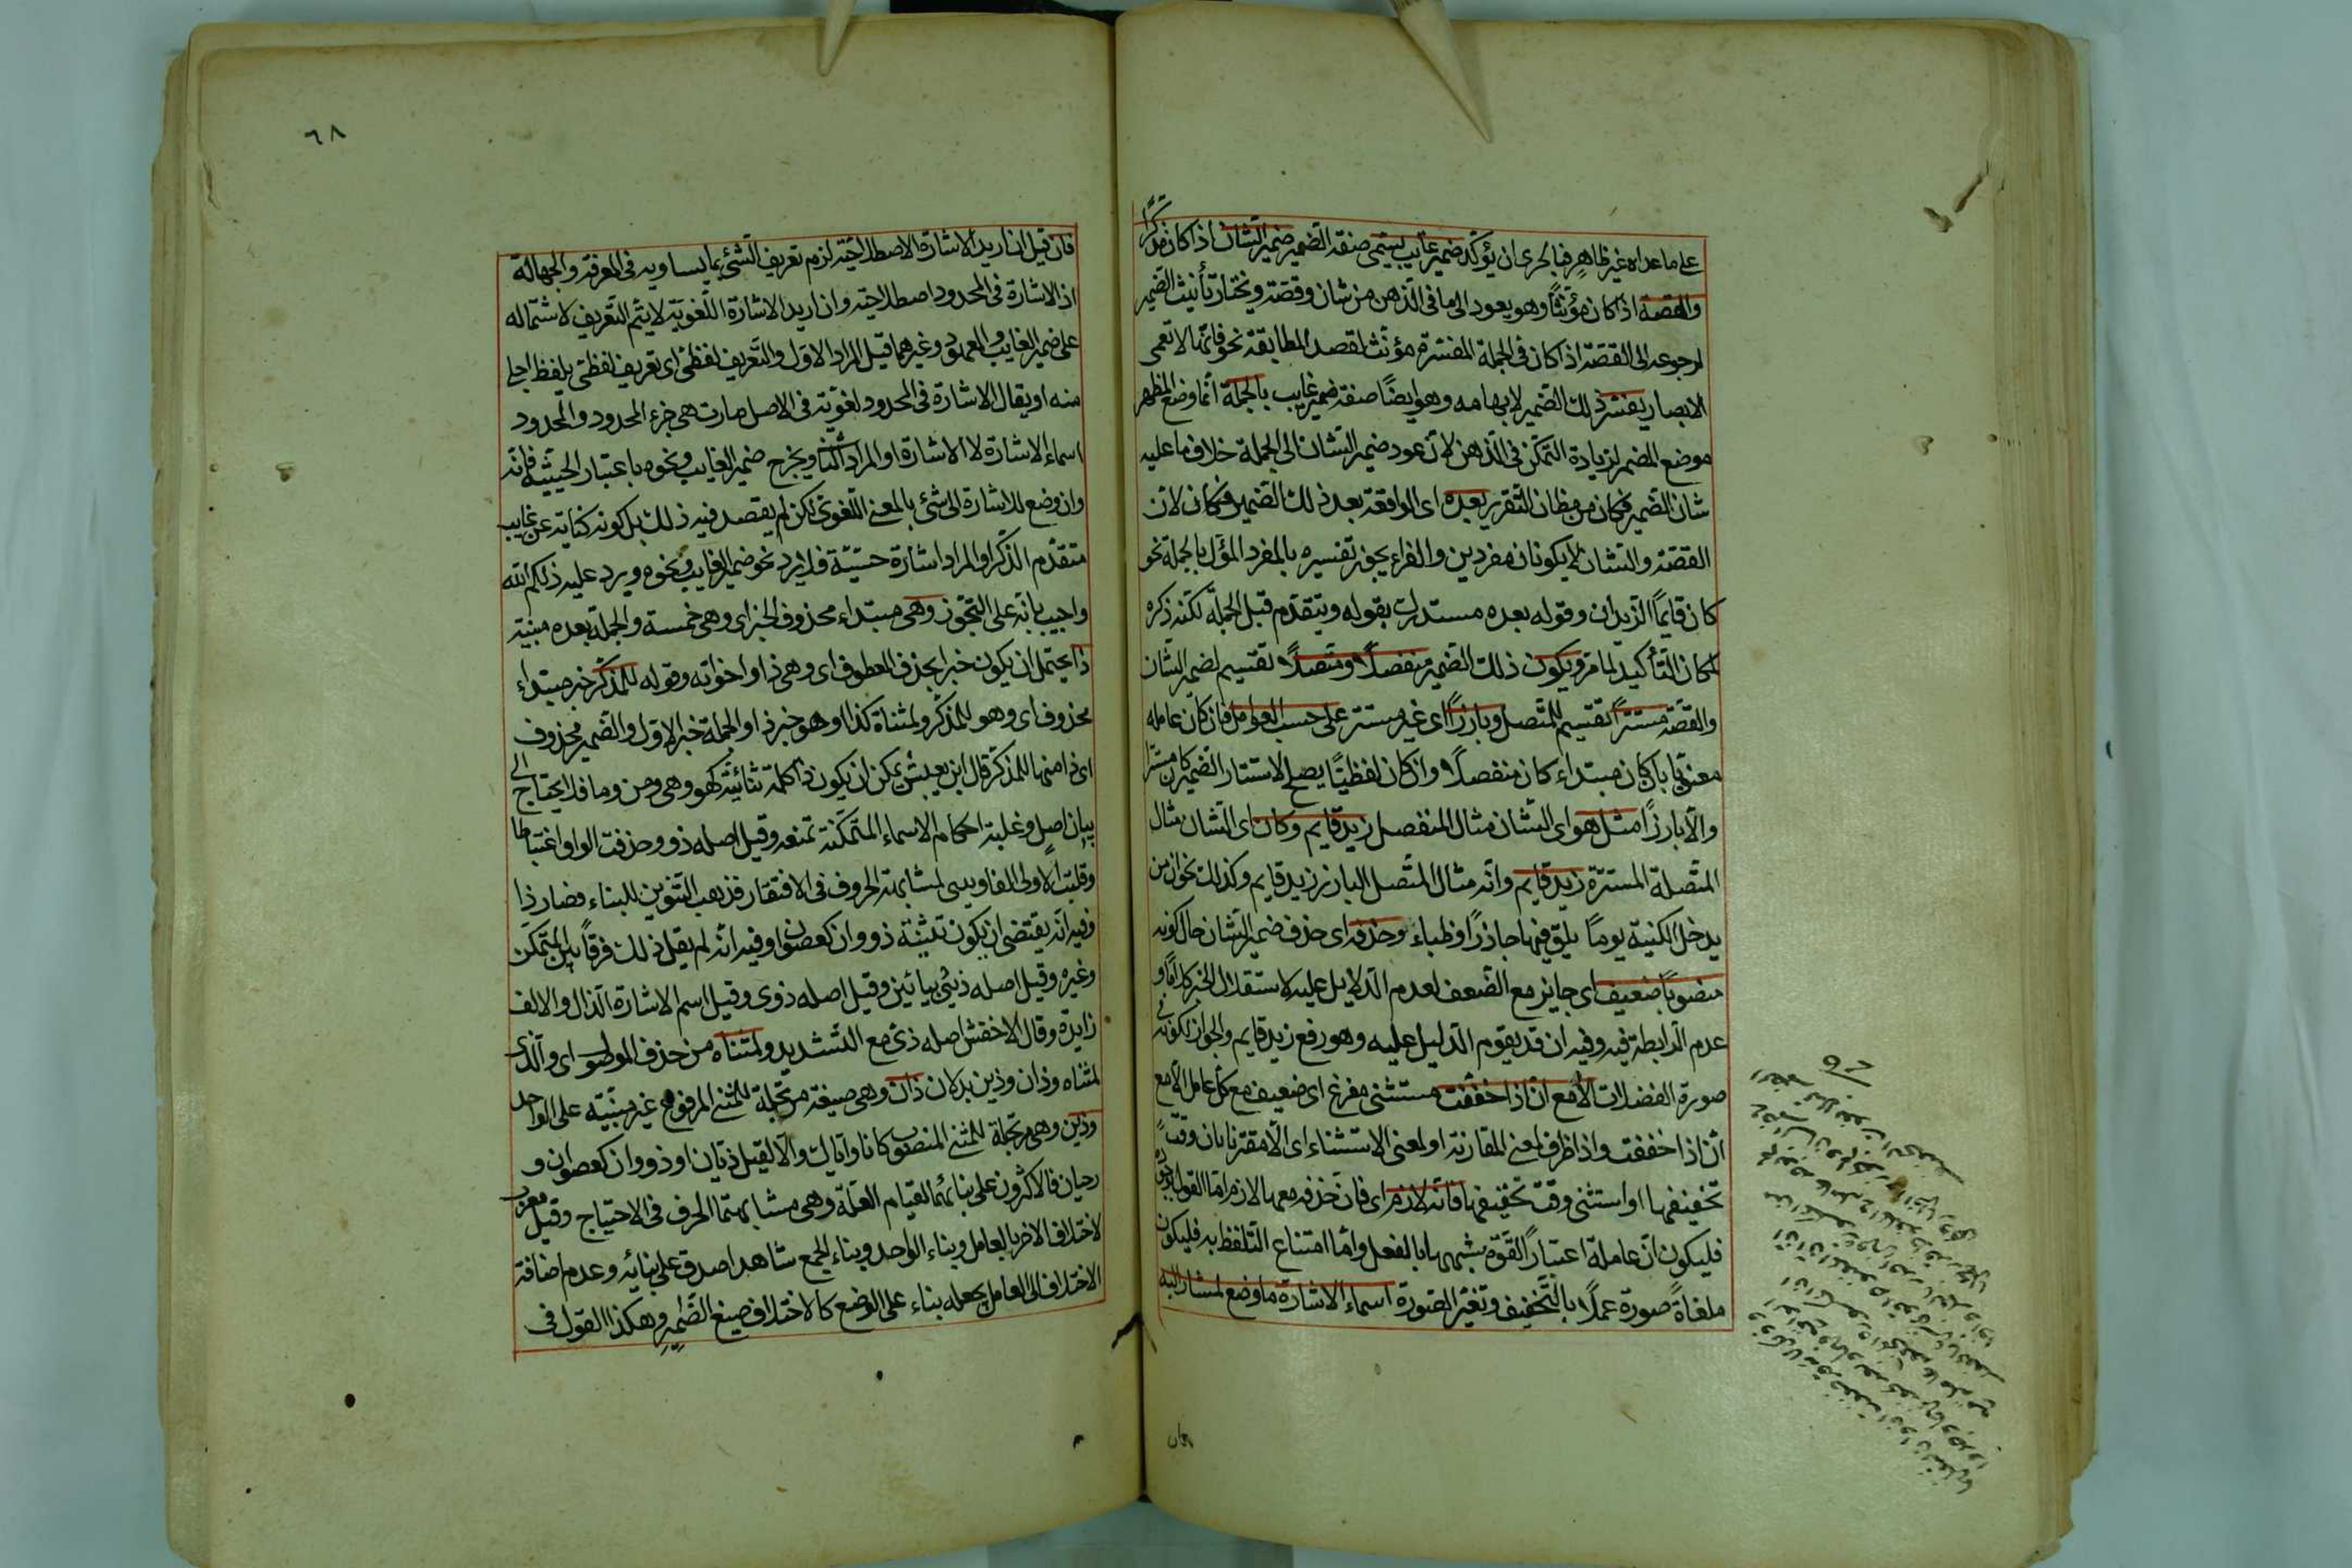 على ما عداه غير ظاهر فبالحرى ان يؤكد ضمير غايب يسمى صفة الضمير ضمير الشان اذا كان مذكرا
والقصة اذا كان مؤنثا وهو يعود الى ما في الذهن من شان وقصة ويختار تأنيث الضمير
لرجوعه الى القصة اذا كان في الجملة المفسرة مؤنث لقصد المطابقة نحو فانها لا تعمى
الابصار يفسر ذلك الضمير لابهامه وهو ايضا صفة ضمير غايب بالجملة انما وضع المظهر
موضع المضمر لزيادة التمكن في الذهن لان عود ضمير الشان الى الجملة خلاف ما عليه
شان الضمير فكان من مظان التقرير بعده اى الواقعة بعد ذلك الضمير فكان لان
القصة والشان لا يكونان مفردين والفراء يجوز تفسيره بالمفرد المؤل بالجملة نحو
كان قايما الزيدان وقوله بعده مستدرك بقوله ويتقدم قبل الجملة لكنه ذكره
لمكان التأكيد لما مر ويكون ذلك الضمير منفصلا ومتصلا تقسيم لضمير الشان
والقصة مستترا تقسيم للمتصل وبارزا اى غير مستتر على حسب العوامل فان كان عامله
معنويا بان كان مبتداء كان منفصلا وان كان لفظيا يصح لاستتار الضمير كان مستترا
والا بارزا مثل هو اى الشان مثال المنفصل زيد قايم وكان اى الشان مثال
المتصلة المستترة زيد قايم وانه مثال المتصل البارز زيد قايم وكذلك نحو ان من
يدخل الكنيسة يوما يلق فيها جاذرا وظباء وحذفه اى حذف ضمير الشان حال كونه
منصوبا ضعيف اى جايز مع الضعف لعدم الدلايل عليه لاستقلال الخبر كلاما و
عدم الرابطة فيه وفيه ان قد يقوم الدليل عليه وهو رفع زيد قايم والجواز لكونه في
صورة الفضلات الا مع ان اذا خففت مستثنى مفرغ اى ضعيف مع كل عامل الا مع
ان اذا خففت واذا ظرف لمعنى المقارنة او لمعنى الاستثناء اى الا مقترنا بان وقت
تخفيفها او استثنى وقت تخفيفها فانه لازم اى فان حذفه معها لازم اما القول
فليكون ان عاملة اعتبارا لقوة شبهها بالفعل واما امتناع التلفظ به فليكون
ملغاة صورة عملا بالتخفيف وتغير الصورة اسماء الاشارة ما وضع لمشار اليه
فان
٦٨
فان قيل ان اريد الاشارة الاصطلاحية لزم تعريف الشئ بما يساويه في المعرفة والجهالة
اذ الاشارة في المحدود اصطلاحية وان اريد الاشارة اللغوية لا يتم التعريف لاشتماله
على ضمير الغايب والمعهود وغيرهما قيل المراد الاول والتعريف لفظى اى تعريف لفظى بلفظ اجلى
منه او يقال الاشارة في المحدود لغوية في الاصل صارت هى جزء المحدود والمحدود
اسماء الاشارة لا الاشارة او المراد الثانى ويخرج ضمير الغايب ونحوه باعتبار الحيثية فانه
وان وضع للاشارة الى شئ بالمعنى اللغوى لكن لم يقصد فيه ذلك بل كونه كناية عن غايب
متقدم الذكر او المراد اشارة حسية فلا يرد نحو ضمير الغايب ونحوه ويرد عليه ذلكم الله
واجيب بانه على التجوز وهى مبتداء محذوف الخبر اى وهى خمسة والجملة بعده مبنية
ذا يحتمل ان يكون خبرا بحذف المعطوف اى وهى ذا واخواته وقوله للمذكر خبر مبتداء
محذوف اى وهو للمذكر ولمثناة كذا او هو خبر ذا والجملة خبر الاول والضمير محذوف
اى ذا منها للمذكر قال ابن يعيش يمكن ان يكون ذا كلمة ثنائية كهو وهى ومن وما فلا يحتاج الى
بيان اصل وغلبة احكام الاسماء المتمكنة تمنعه وقيل اصله ذوو حذفت الواو اعتباطا
وقلبت الاولى الفا وبنى لمشابهته الحروف في الافتقار فذهب التنوين للبناء فصار ذا
وفيه انه يقتضى ان يكون تثنيته ذووان كعصوان وفيه انه لم يقل ذلك فرقا بين المتمكن
وغيره وقيل اصله ذيى بيائين وقيل اصله ذوى وقيل اسم الاشارة الذال والالف
زايدة وقال الاخفش اصله ذى مع التشديد ولمثناه من حذف الموصول اى والذى
لمثناه وذان وذين بدلان ذان وهى صيغة مرتجلة للمثنى المرفوع غير مبنية على الواحد
وذين وهى مرتجلة للمثنى المنصوب كانا واياك والا لقيل ذيان او ذووان كعصوان و
رحيان فالاكثرون على بنائهما لقيام العلة وهى مشابهتهما الحرف في الاحتياج وقيل معرب
لاختلاف الاخر بالعامل وبناء الواحد وبناء الجمع شاهدا صدق على بنائه وعدم اضافة
الاختلاف الى العامل بجعله بناء على الوضع كالاختلاف صيغ الضمير وهكذا القول في